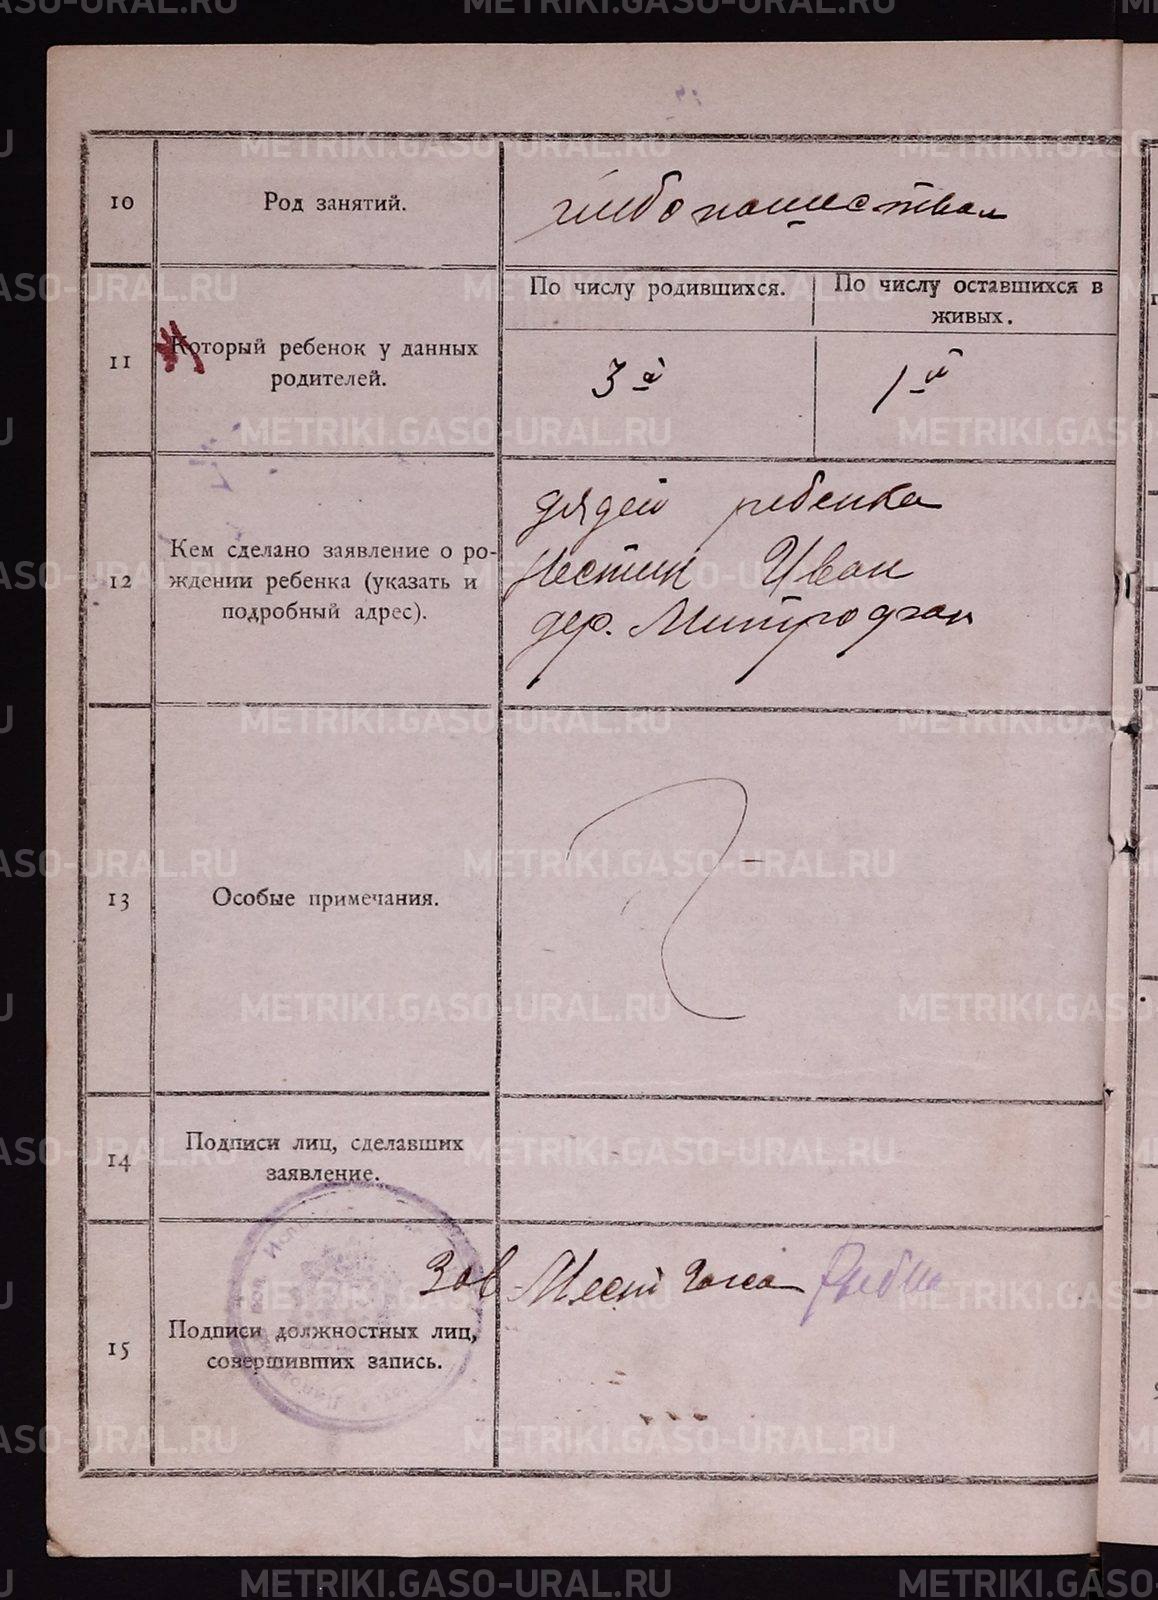 METRIKI.GASO-URAL.RU
10
Род занятий.
хлебопашество
11
Который ребенок у данных
родителей.
По числу родившихся.
По числу оставшихся в
живых.
3й
1й
12
Кем сделано заявление о ро-
ждении ребенка (указать и
подробный адрес).
дядей ребенка
Иван
дер.
13
Особые примечания.
14
Подписи лиц, сделавших
заявление.
15
Подписи должностных лиц,
совершивших запись.
Зав